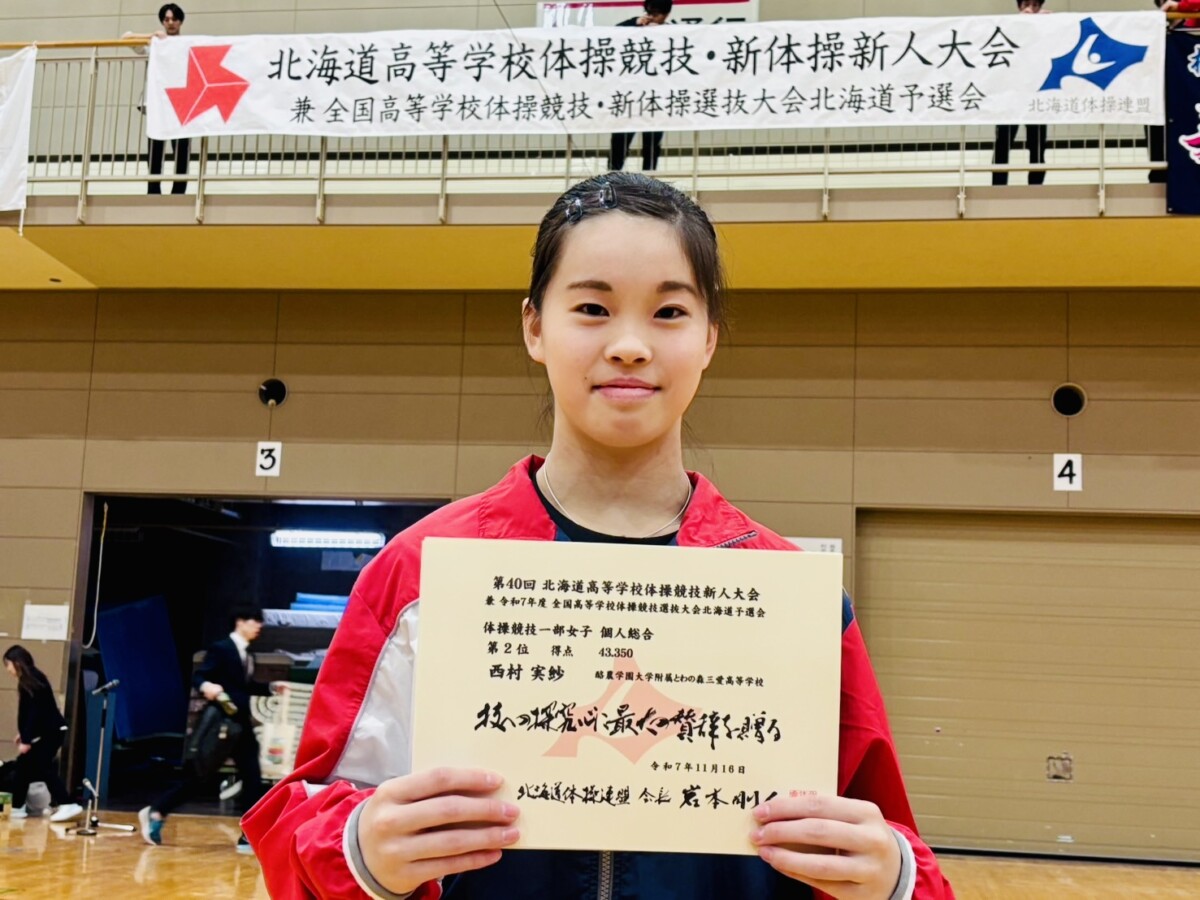 北海道高等学校体操競技・新体操新人大会
兼 全国高等学校体操競技・新体操選抜大会北海道予選会
北海道体操連盟
3
4
第40回 北海道高等学校体操競技新人大会
兼 令和7年度 全国高等学校体操競技選抜大会北海道予選会
体操競技一部女子 個人総合
第2位 得点 43.350
西村 実紗 酪農学園大学附属とわの森三愛高等学校
技への探究心に最大の賛辞を贈る
令和7年11月16日
北海道体操連盟 会長 岩本剛人